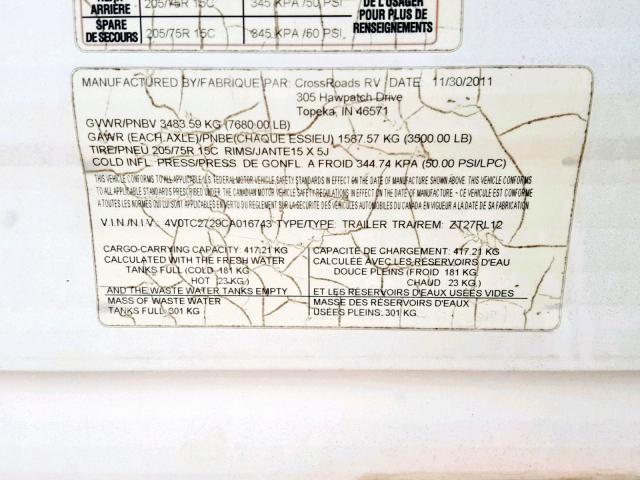 ARRIÈRE 205/75R 15C 345 KPA /50 PSI DE L'USAGER
POUR PLUS DE
RENSEIGNEMENTS
SPARE
DE SECOURS 205/75R 15C 345 KPA /50 PSI
MANUFACTURED BY/FABRIQUE PAR: CrossRoads RV DATE 11/30/2011
305 Hawpatch Drive
Topeka, IN 46571
GVWR/PNBV 3483.59 KG (7680.00 LB)
GAWR (EACH AXLE)/PNBE(CHAQUE ESSIEU) 1587.57 KG (3500.00 LB)
TIRE/PNEU 205/75R 15C RIMS/JANTE15 X 5J
COLD INFL. PRESS/PRESS DE GONFL. A FROID 344.74 KPA (50.00 PSI/LPC)
THIS VEHICLE CONFORMS TO ALL APPLICABLE U.S. FEDERAL MOTOR VEHICLE SAFETY STANDARDS IN EFFECT ON THE DATE OF MANUFACTURE SHOWN ABOVE. THIS VEHICLE CONFORMS
TO ALL APPLICABLE STANDARDS PRESCRIBED UNDER THE CANADIAN MOTOR VEHICLE SAFETY REGULATIONS IN EFFECT ON THE DATE OF MANUFACTURE - CE VEHICULE EST CONFORME
A TOUTES LES NORMES QUI LUI SONT APPLICABLES EN VERTU DU REGLEMENT SUR LA SECURITE DES VEHICULES AUTOMOBILES DU CANADA EN VIGUEUR A LA DATE DE SA FABRICATION
V.I.N./N.I.V. 4V0TC2729CA016743 TYPE/TYPE TRAILER TRA/REM: ZT27RL12
CARGO-CARRYING CAPACITY: 417.21 KG
CALCULATED WITH THE FRESH WATER
TANKS FULL (COLD 181 KG
HOT 23 KG )
AND THE WASTE WATER TANKS EMPTY
MASS OF WASTE WATER
TANKS FULL: 301 KG
CAPACITE DE CHARGEMENT: 417.21 KG
CALCULÉE AVEC LES RÉSERVOIRS D'EAU
DOUCE PLEINS (FROID 181 KG
CHAUD 23 KG.)
ET LES RÉSERVOIRS D'EAUX USÉES VIDES
MASSE DES RÉSERVOIRS D'EAUX
USÉES PLEINS: 301 KG